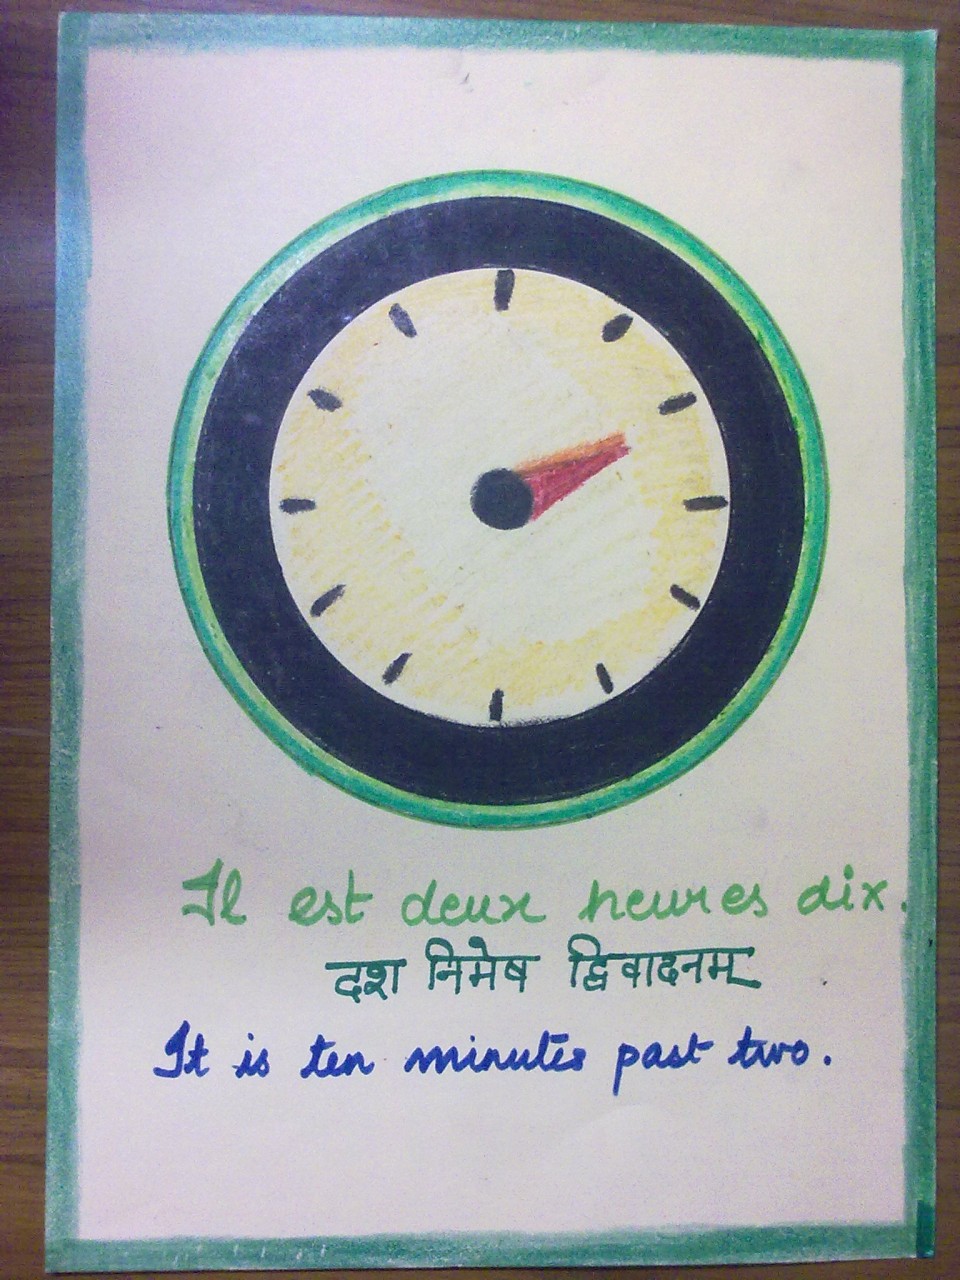 Il est deux heures dix.
दश निमेष द्विवादनम्
It is ten minutes past two.